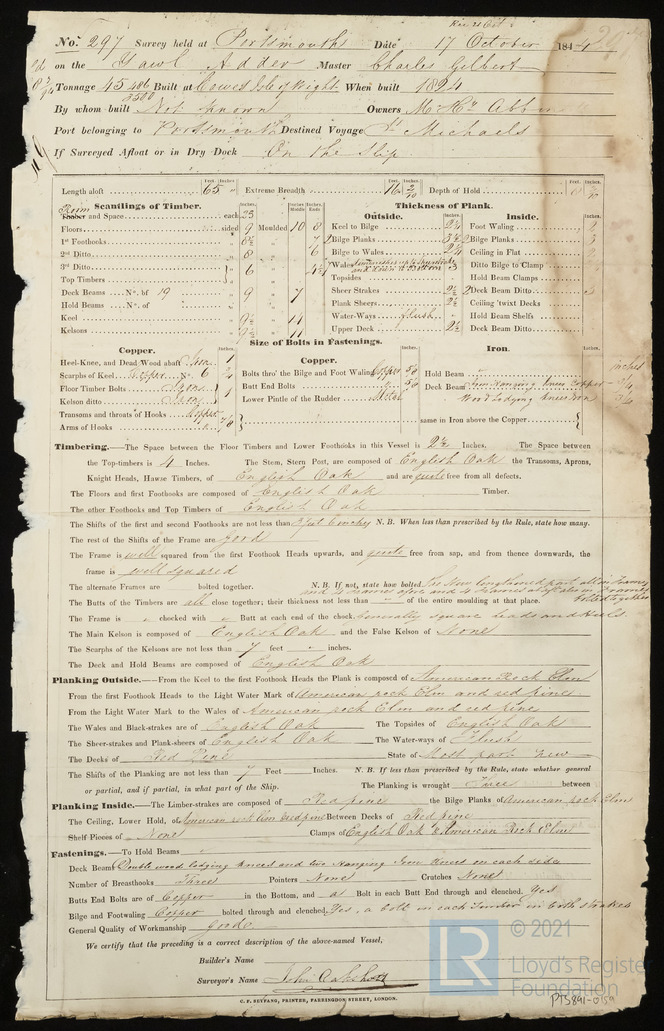 No. 297 Survey held at Portsmouth Date 17 October 1844
on the Yawl Adder Master Charles Gilbert
Tonnage 45 406/3500 Built at Cowes Isle of Wight When built 1824
By whom built Not known Owners Mr Hy
Port belonging to Portsmouth Destined Voyage St Michaels
If Surveyed Afloat or in Dry Dock On the Slip
Length aloft 65 Extreme Breadth 16 2/10 Depth of Hold
Scantlings of Timber.
Room and Space each 23
Floors sided 9 Moulded 10 8
1st Foothooks 8½ 7
2nd Ditto 8 6
3rd Ditto } 6 4½
Top Timbers
Deck Beams No. of 19 9 7
Hold Beams No. of
Keel 9½ 11
Kelsons 9½ 11
Thickness of Plank.
Outside.
Keel to Bilge 2¼
Bilge Planks 3½
Bilge to Wales 2¼
Wales 3
Topsides
Sheer Strakes 2½
Plank Sheers 2½
Water-Ways flush
Upper Deck 2½
Inside.
Foot Waling 2
Bilge Planks 3
Ceiling in Flat
Ditto Bilge to Clamp
Hold Beam Clamps
Deck Beam Ditto 3
Ceiling 'twixt Decks
Hold Beam Shelfs
Deck Beam Ditto
Size of Bolts in Fastenings.
Copper.
Heel-Knee, and Dead Wood abaft Iron 1
Scarphs of Keel Copper No. 6 ¾
Floor Timber Bolts Iron } 1
Kelson ditto Iron
Transoms and throats of Hooks Copper 7/8
Arms of Hooks
Copper.
Bolts thro' the Bilge and Foot Waling Copper 5/8
Butt End Bolts " 5/8
Lower Pintle of the Rudder
Iron.
Hold Beam
Deck Beam Iron Hanging knees Copper 3/4
Wood Lodging knees Iron 5/8
same in Iron above the Copper
Timbering.—The Space between the Floor Timbers and Lower Foothooks in this Vessel is 2½ Inches. The Space between
the Top-timbers is 4 Inches. The Stem, Stern Post, are composed of English Oak the Transoms, Aprons,
Knight Heads, Hawse Timbers, of English Oak and are quite free from all defects.
The Floors and first Foothooks are composed of English Oak Timber.
The other Foothooks and Top Timbers of English Oak
The Shifts of the first and second Foothooks are not less than N.B. When less than prescribed by the Rule, state how many.
The rest of the Shifts of the Frame are good
The Frame is well squared from the first Foothook Heads upwards, and quite free from sap, and from thence downwards, the
frame is well squared
The alternate Frames are bolted together. N.B. If not, state how bolted. The New lengthened part all in Frames
and 4 Frames afore and 4 Frames abaft also in Frames bolted together
The Butts of the Timbers are all close together; their thickness not less than of the entire moulding at that place.
The Frame is " chocked with " Butt at each end of the chock. Generally square heads and heels.
The Main Kelson is composed of English Oak and the False Kelson of None
The Scarphs of the Kelsons are not less than 7 feet " inches.
The Deck and Hold Beams are composed of English Oak
Planking Outside.—From the Keel to the first Foothook Heads the Plank is composed of American Rock Elm
From the first Foothook Heads to the Light Water Mark of American rock Elm and red pine
From the Light Water Mark to the Wales of American rock Elm and red pine
The Wales and Black-strakes are of English Oak The Topsides of English Oak
The Sheer-strakes and Plank-sheers of English Oak The Water-ways of Flush
The Decks of Red Pine State of Most part New
The Shifts of the Planking are not less than 7 Feet Inches. N.B. If less than prescribed by the Rule, state whether general
or partial, and if partial, in what part of the Ship. The Planking is wrought Three between
Planking Inside.—The Limber-strakes are composed of Red pine the Bilge Planks of American rock Elm
The Ceiling, Lower Hold, of American rock Elm & red pine Between Decks of Red pine
Shelf-Pieces of None Clamps of English Oak & American Rock Elm
Fastenings.—To Hold Beams
Deck Beams Double wood lodging knees and two Hanging Iron knees on each side
Number of Breasthooks Three Pointers None Crutches None
Butts End Bolts are of Copper in the Bottom, and a Bolt in each Butt End through and clenched. Yes
Bilge and Footwaling Copper bolted through and clenched. Yes, a bolt in each Timber in both strakes
General Quality of Workmanship good
We certify that the preceding is a correct description of the above-named Vessel,
Builder's Name
Surveyor's Name John
C. F. SEYFANG, PRINTER, FARRINGDON STREET, LONDON.
LR
© 2021
Lloyd's Register
Foundation